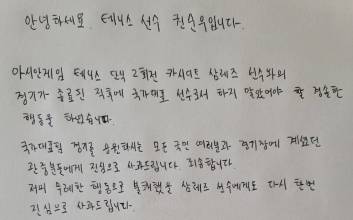 안녕하세요. 테니스 선수 권순우입니다.
아시안게임 테니스 단식 2회전 카시디트 삼레즈 선수와의
경기가 종료된 직후에 국가대표 선수로서 하지 말았어야 할 경솔한
행동을 하였습니다.
국가대표팀 경기를 응원하시는 모든 국민 여러분과 경기장에 계셨던
관중분들에게 진심으로 사과드립니다. 죄송합니다
저의 무례한 행동으로 불쾌했을 삼레즈 선수에게도 다시 한번
진심으로 사과드립니다.